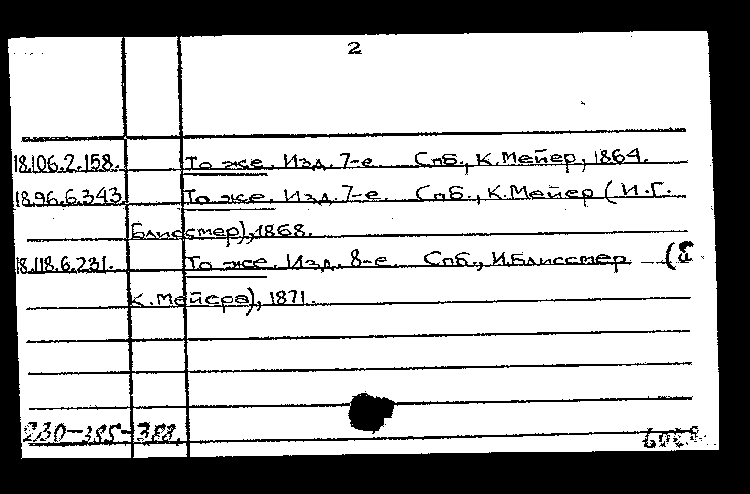 2
18.106.2.158. То же. Изд. 7-е. Спб., К. Мейер, 1864.
18.96.6.343 То же. Изд. 7-е. Спб., К. Мейер (И.Г.
Блиссмер), 1868.
18.118.6.231. То же. Изд. 8-е. Спб., И. Блиссмер (б.
К. Мейера), 1871.
230-385-388.